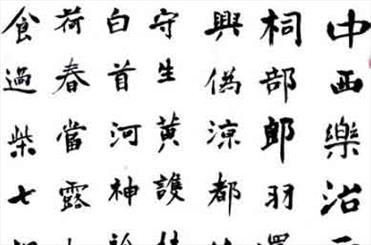 中西樂治
祠部郎羽
興偽涼都
守生黃護
白首河神
荷春當露
食過柴七